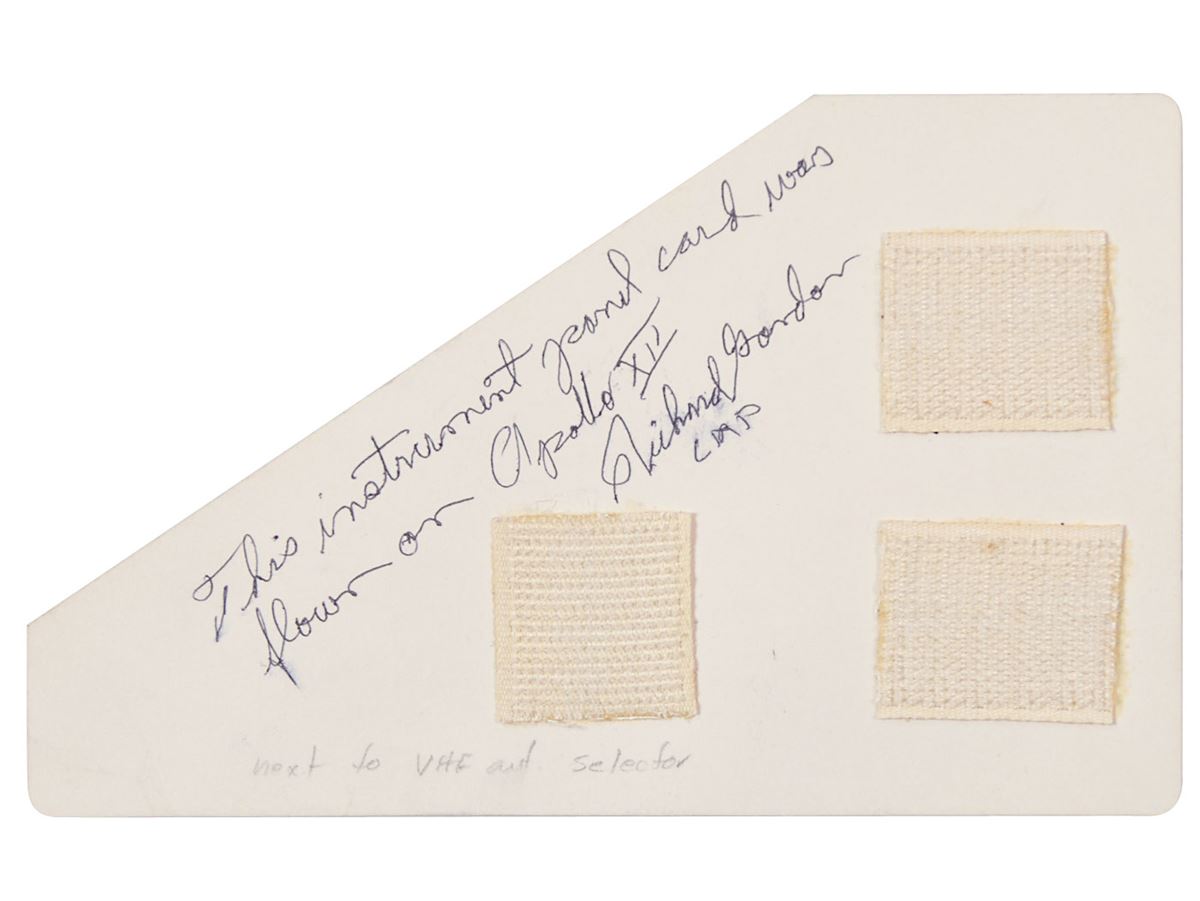 This instrument panel card was
flown on Apollo XII
Richard Gordon
CMP
next to VHF ant. selector